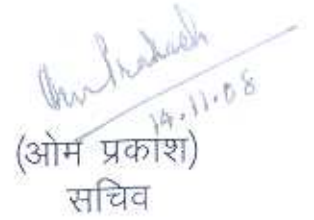 Om Prakash
14.11.08
(ओम प्रकाश)
सचिव